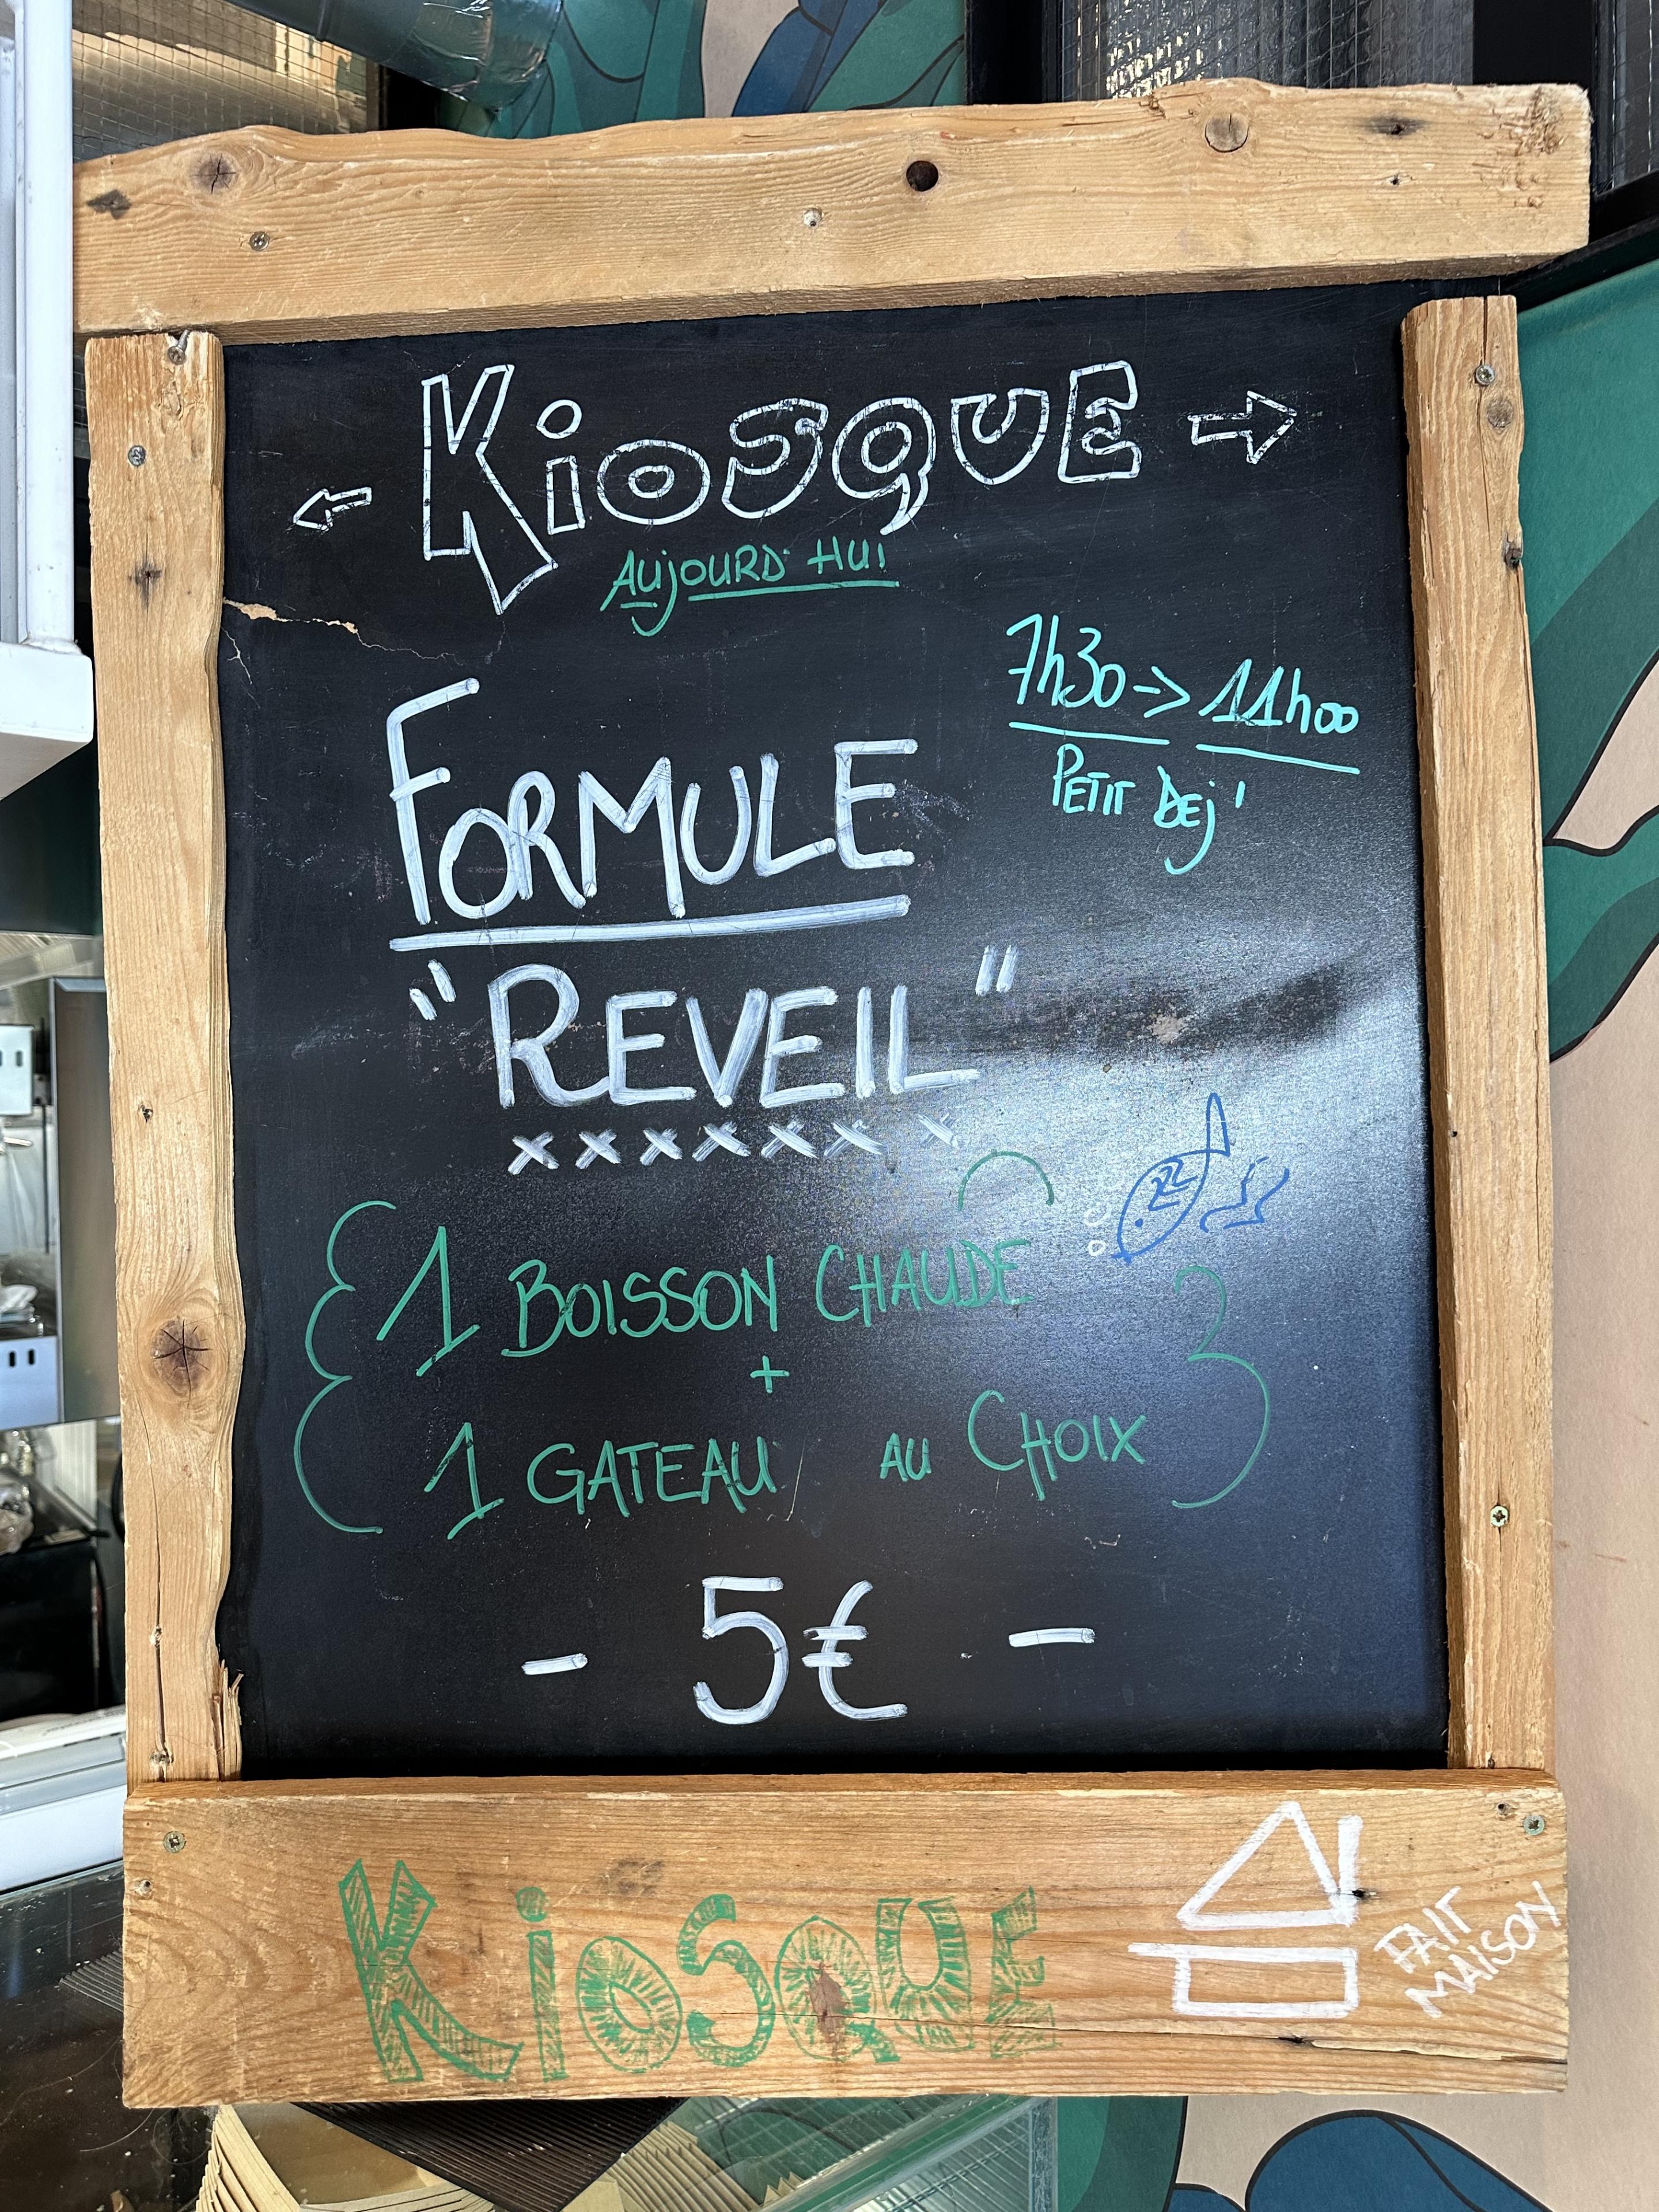 KiosQUE
AUjOURD' HUI
7h30 -> 11h00
PETIT DEj'
FORMULE
"REVEIL"
xxxxxxx
1 BOISSON CHAUDE
+
1 GATEAU AU CHOIX
- 5€ -
KiosQUE
FAIT
MAISON